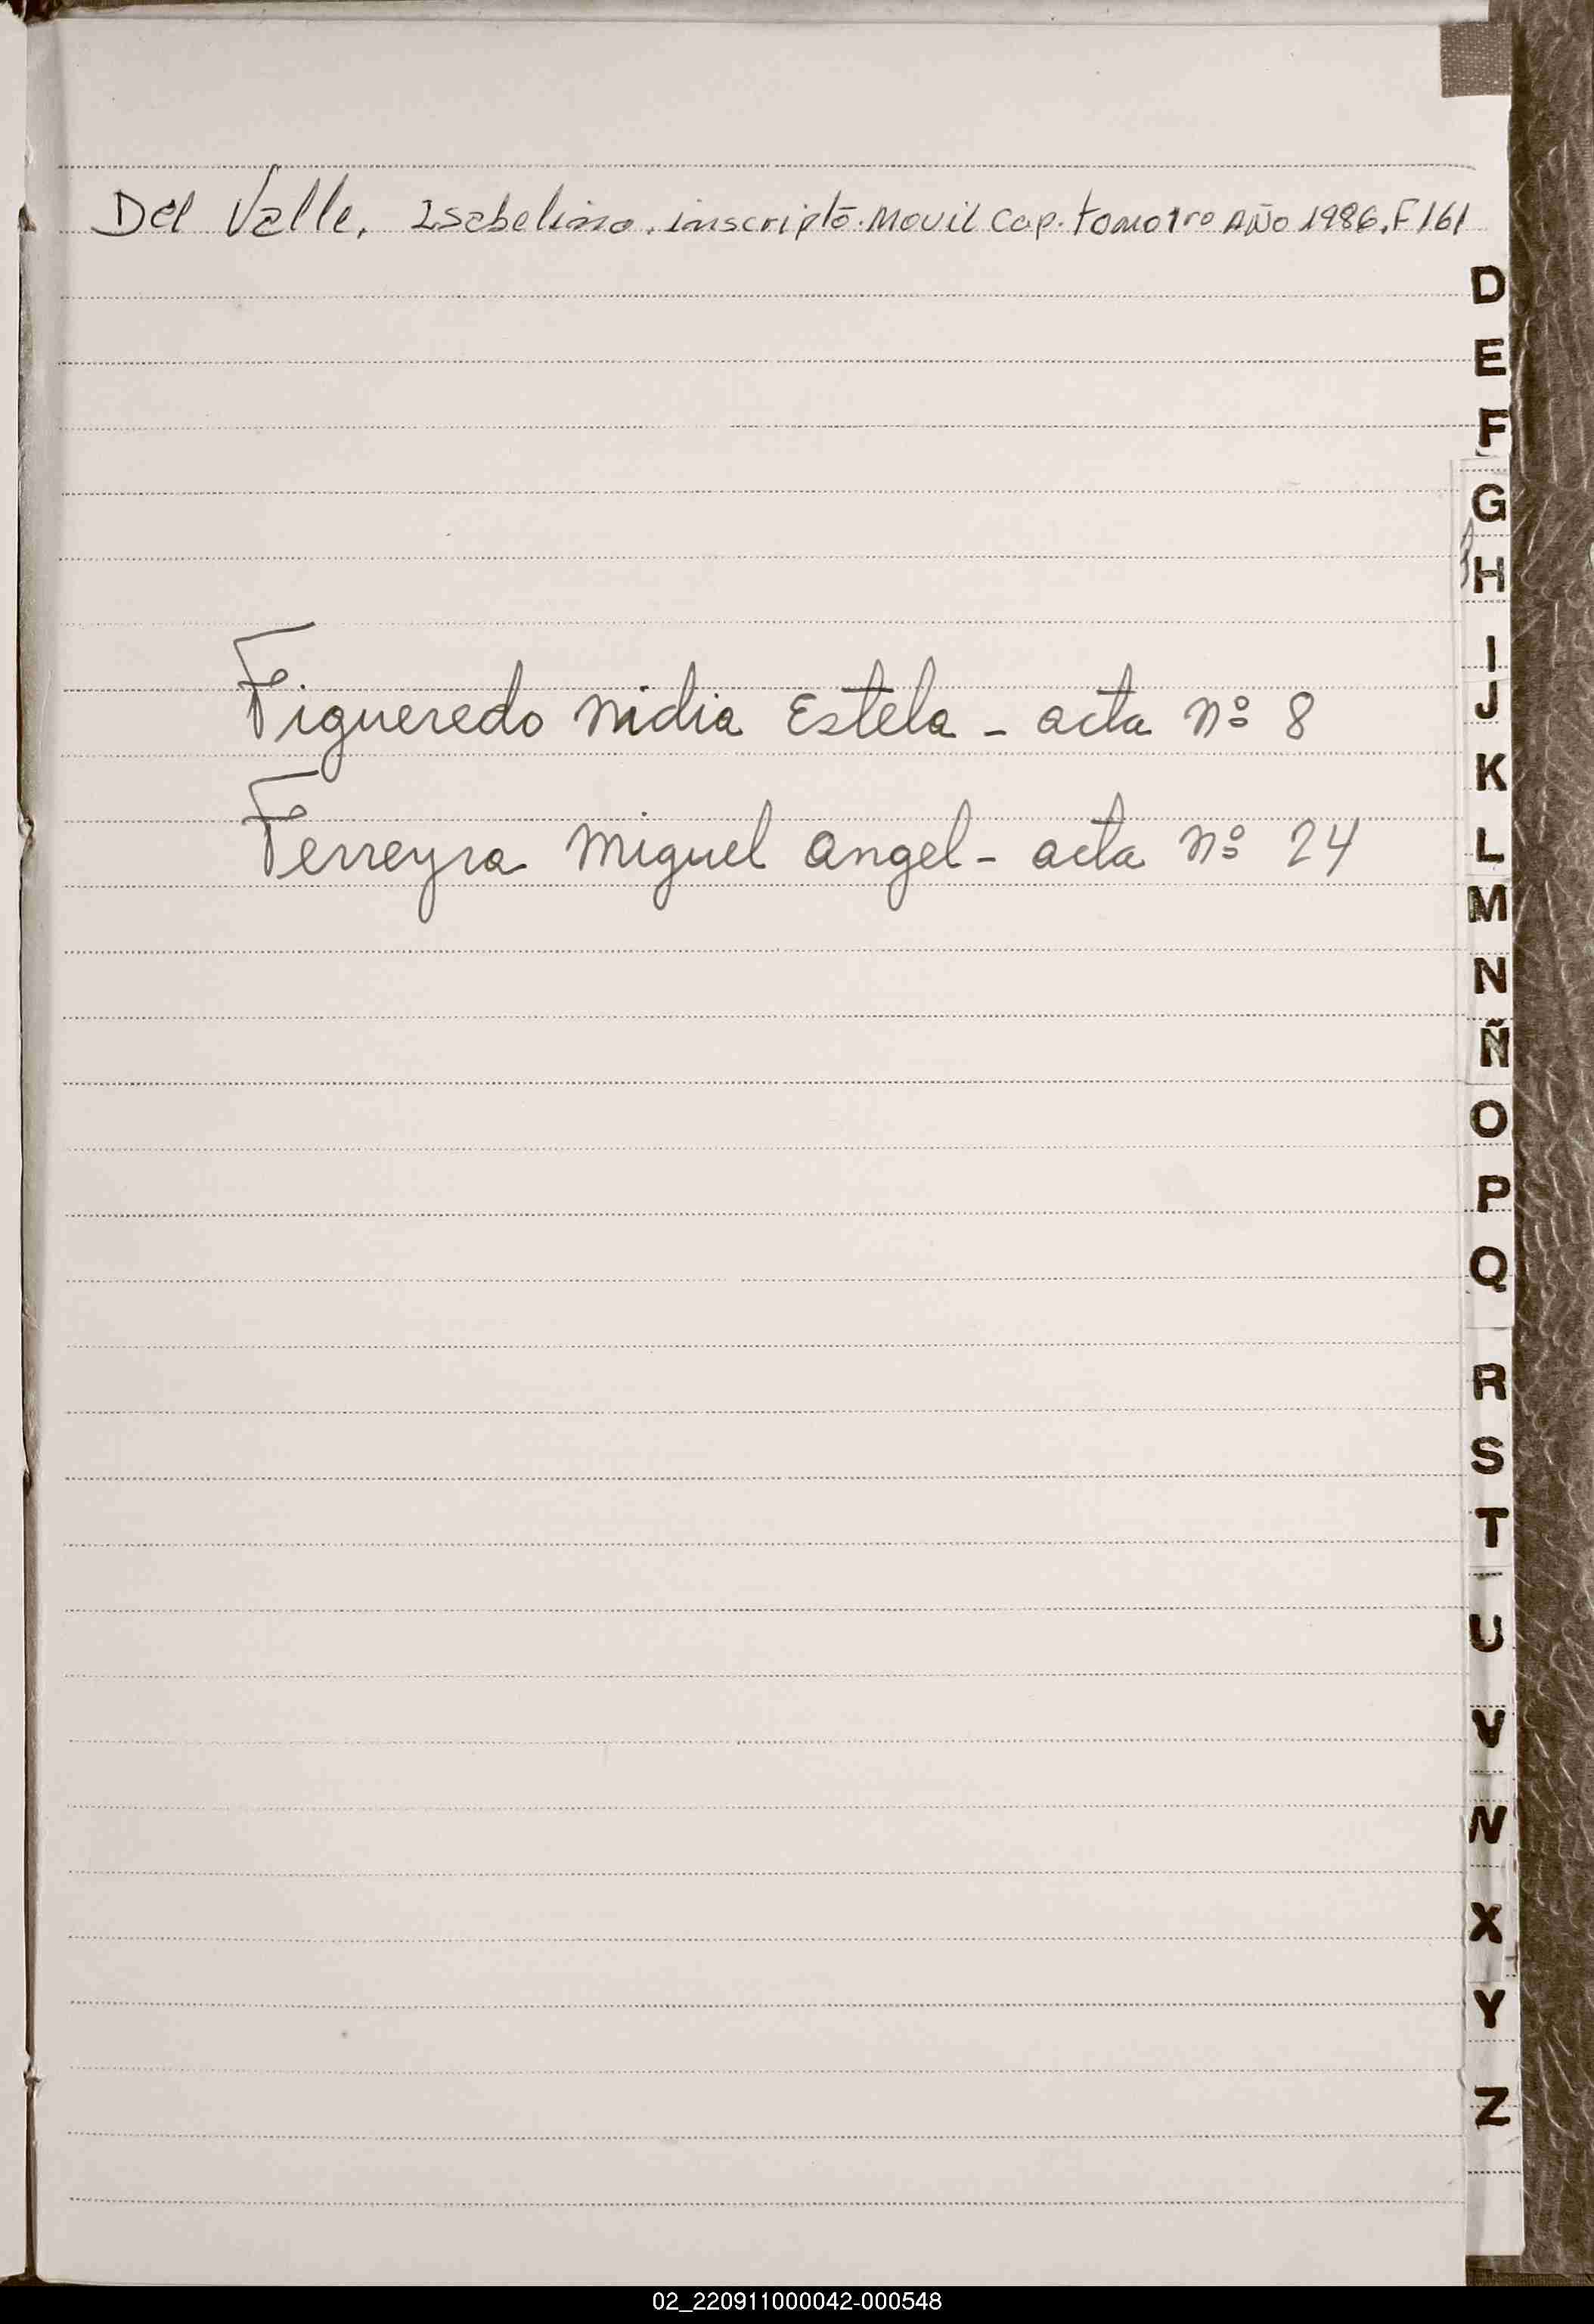 Del Valle, Isabelino. inscripto. Movil Cap. tomo 1ro Año 1986. F 161
D
E
F
G
H
I
Figueredo Nidia Estela - acta nº 8
J
K
Ferreyra Miguel Angel - acta nº 24
L
M
N
Ñ
O
P
Q
R
S
T
U
V
X
Y
Z
02_220911000042-000548